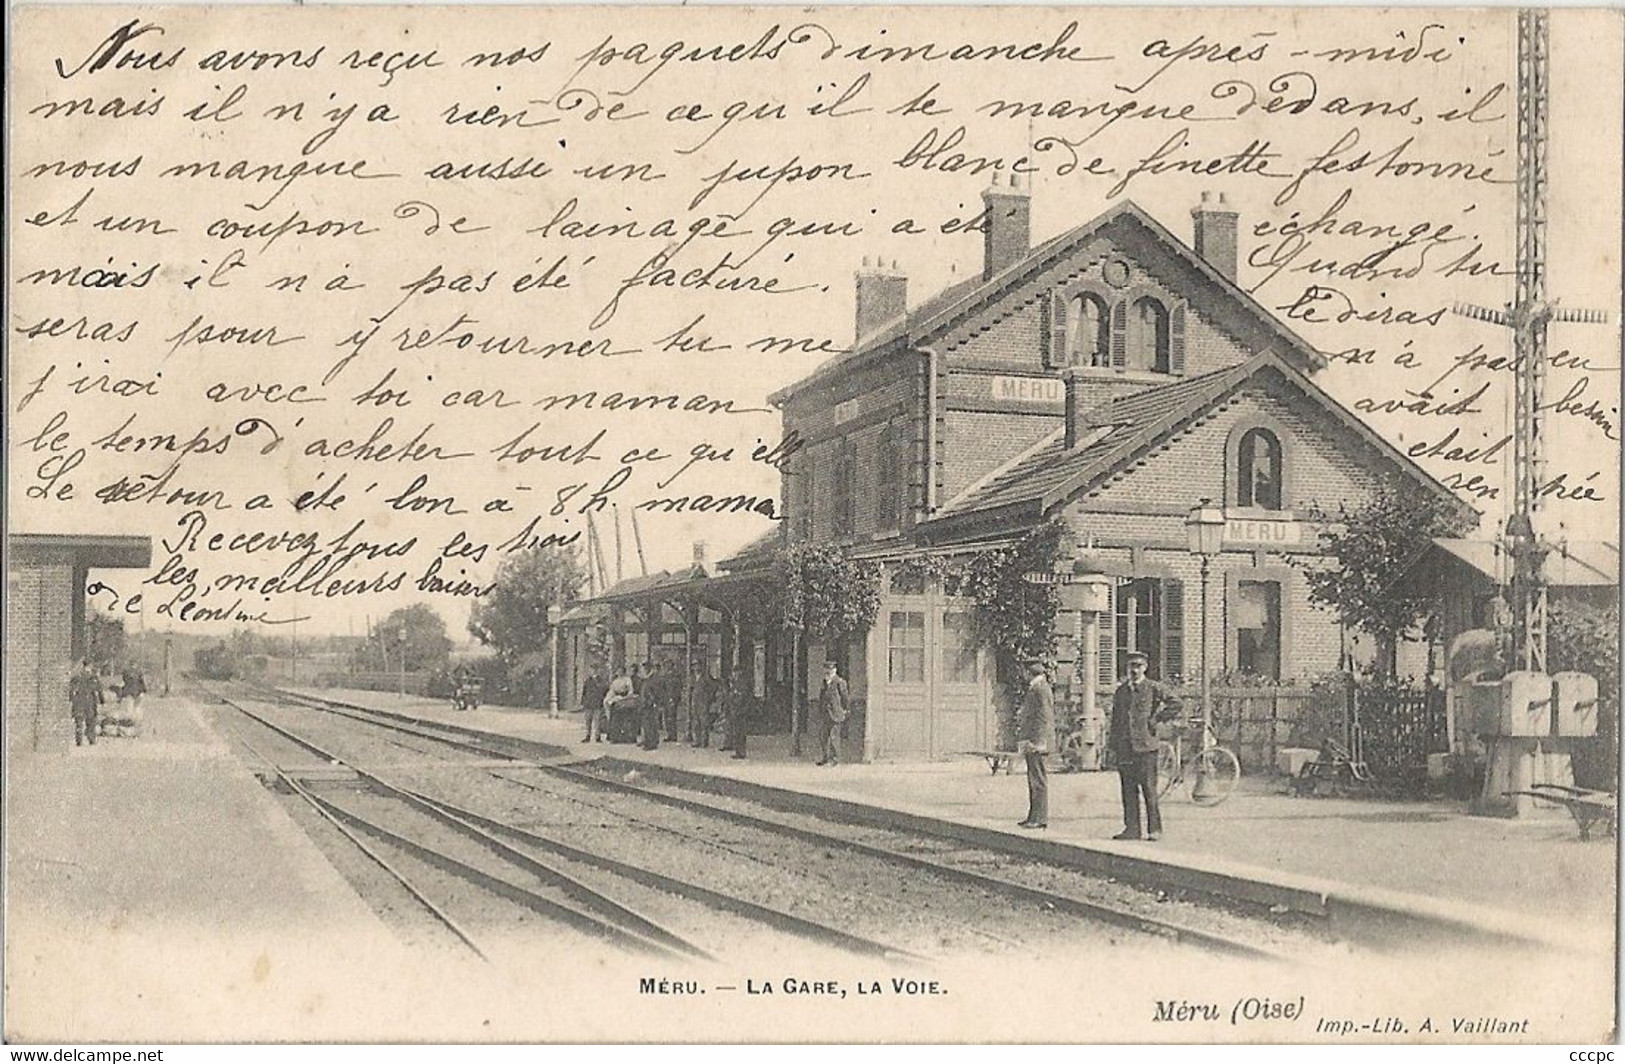 Nous avons reçu nos paquets dimanche après-midi
mais il n'y a rien de ce qu'il te mangue dedans, il
nous mangue aussi un jupon blanc de finette festonné
et un coupon de lainage qui a été échangé.
mais il n'a pas été facturé. Quand tu
seras pour y retourner tu me le diras
j'irai avec toi car maman n'a pas eu
le temps d'acheter tout ce qu'elle avait besoin
Le retour a été bon à 8h. maman était rentrée
Recevez tous les trois
les meilleurs baisers
de Léontine
MERU
MERU
MÉRU. — LA GARE, LA VOIE.
Méru (Oise)
Imp.-Lib. A. Vaillant
cccpc
https://www.delcampe.net